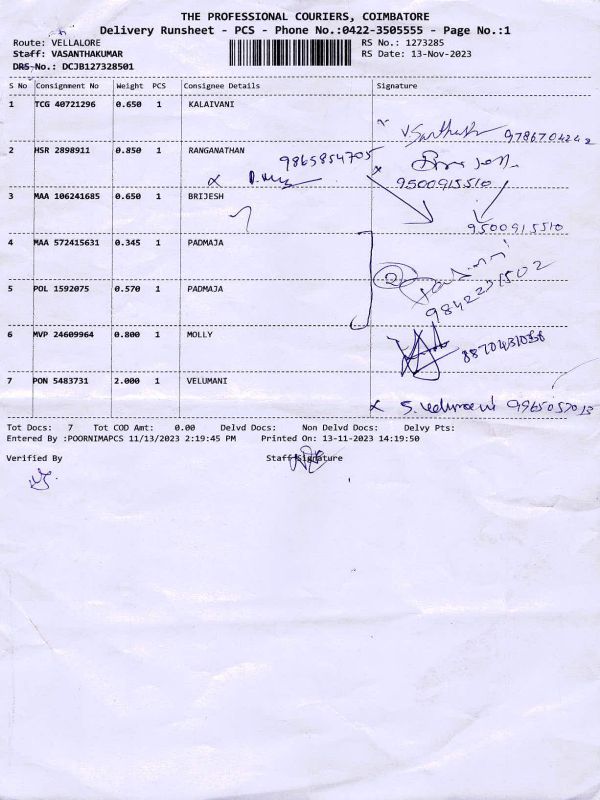 THE PROFESSIONAL COURIERS, COIMBATORE
Delivery Runsheet - PCS - Phone No.:0422-3505555 - Page No.:1
Route: VELLALORE RS No.: 1273285
Staff: VASANTHAKUMAR RS Date: 13-Nov-2023
DRS-No.: DCJB127328501
S No Consignment No Weight PCS Consignee Details Signature
1 TCG 40721296 0.650 1 KALAIVANI
V Santhosh 9786704242
2 HSR 2898911 0.850 1 RANGANATHAN
9865854705
9500915510
3 MAA 106241685 0.650 1 BRIJESH
9500915510
4 MAA 572415631 0.345 1 PADMAJA
2
5 POL 1592075 0.570 1 PADMAJA
9842231502
6 MVP 24609964 0.800 1 MOLLY
8870431058
7 PON 5483731 2.000 1 VELUMANI
S. Velumani 9965057013
Tot Docs: 7 Tot COD Amt: 0.00 Delvd Docs: Non Delvd Docs: Delvy Pts:
Entered By :POORNIMAPCS 11/13/2023 2:19:45 PM Printed On: 13-11-2023 14:19:50
Verified By Staff Signature